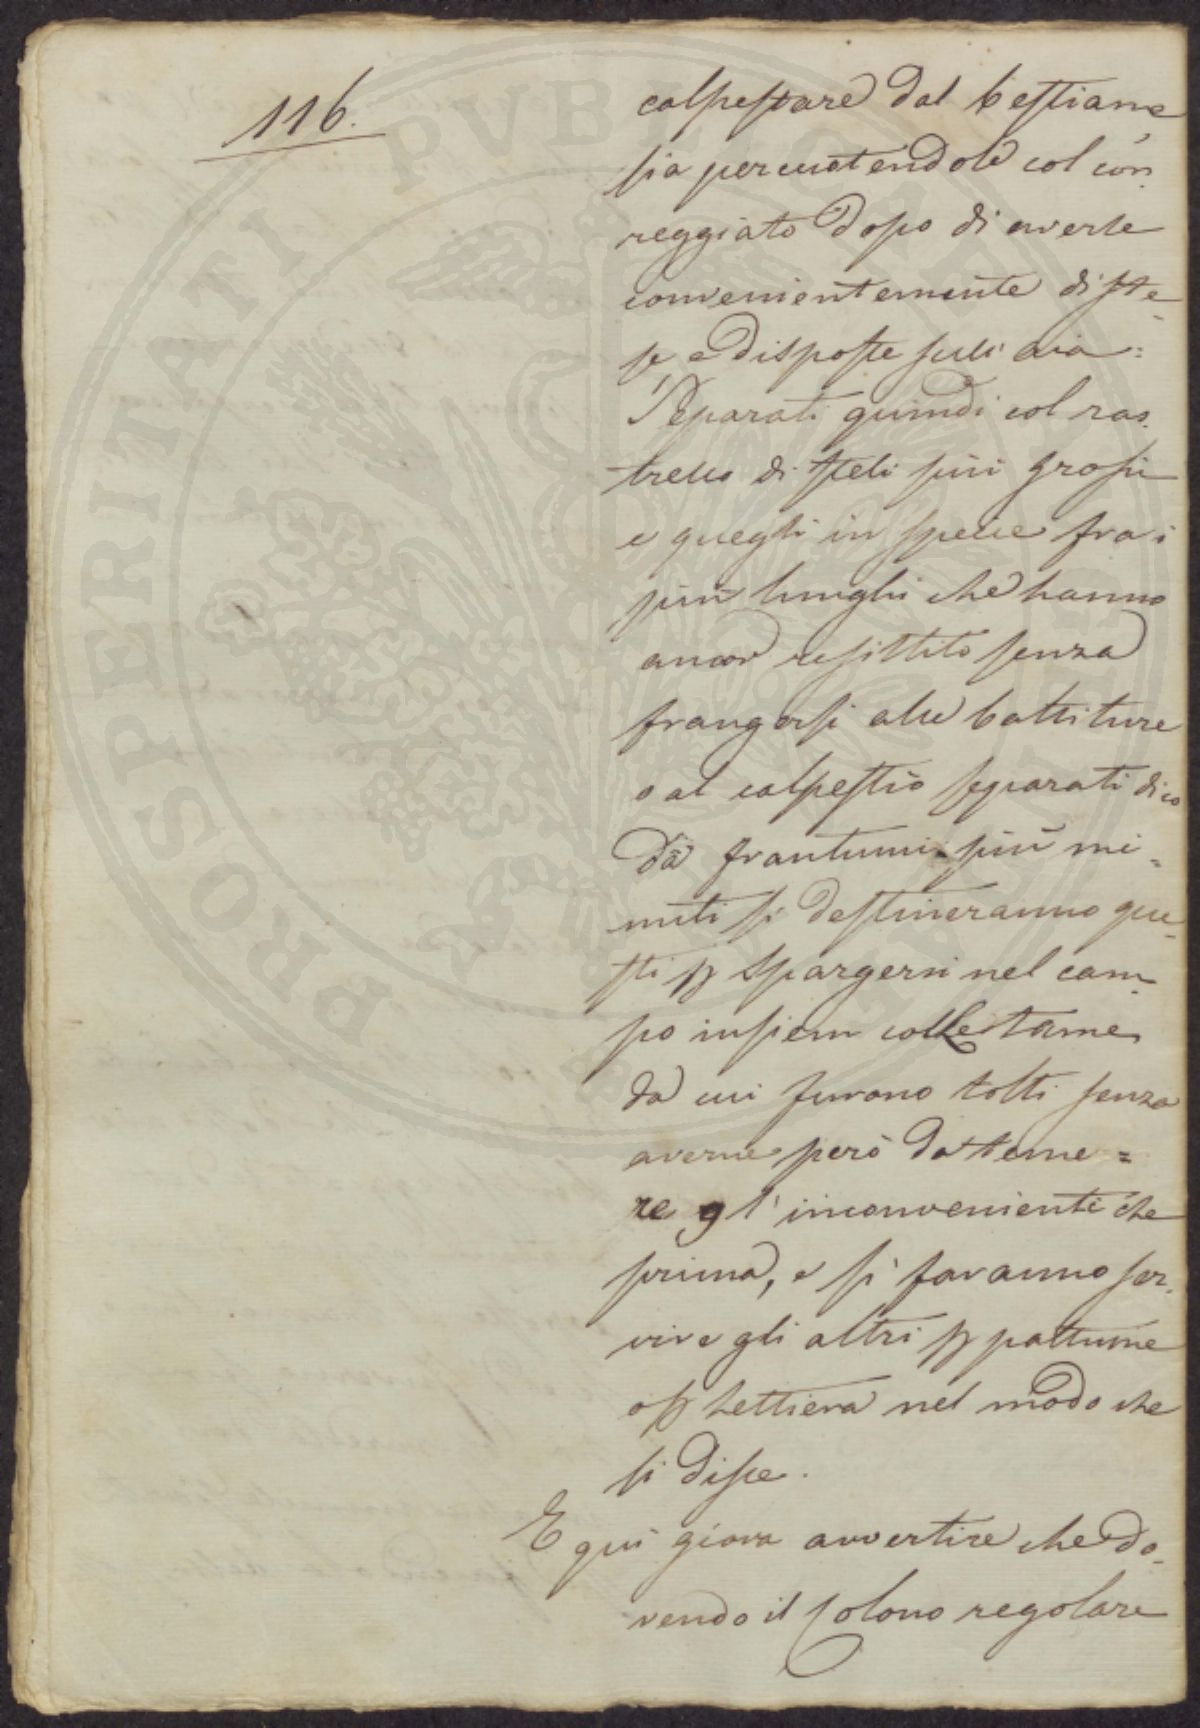 116.
calpestare dal bestiame
sia percuotendole col cor
reggiato dopo di averle
convenientemente diste=
se e disposte sull aia:
Separati quindi col ras
trello di steli più grossi
e quegli in specie fra i
più lunghi che hanno
ancor resistito senza
frangersi alle battiture
o al calpestio separati dico
dà frantumi più mi=
nuti si destineranno que=
sti p spargersi nel cam
po insiem collo stame
da cui furono tolti senza
averne però da teme=
re gl' inconvenienti che
prima, e si faranno ser
vire gli altri p pattume
o p lettiera nel modo che
si disse.
E qui giova avvertire che do=
vendo il colono regolare
PROSPERITATI PVBLICAE